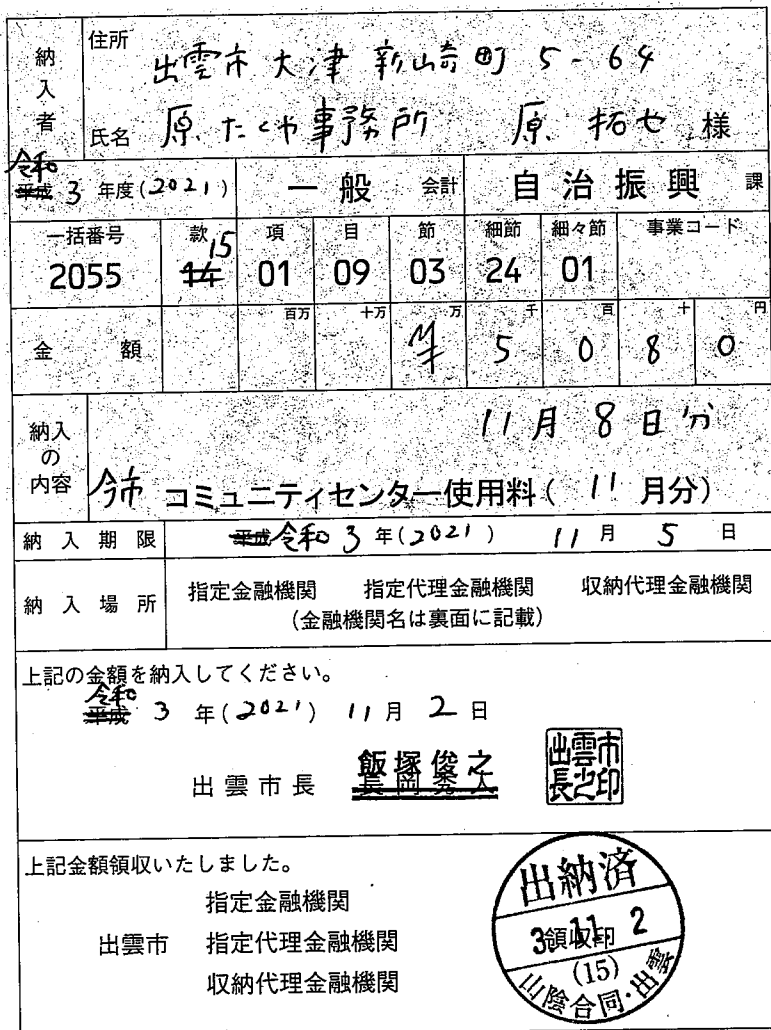 納入者
住所
出雲市大津新崎町5-64
氏名 原たくや事務所 原 拓也 様
令和
平成 3 年度(2021) 一般 会計 自治振興 課
一括番号 款 項 目 節 細節 細々節 事業コード
15
2055 14 01 09 03 24 01
百万 十万 万 千 百 十 円
金額 ¥ 5 0 8 0
11月8日分
納入の内容 今市 コミュニティセンター使用料( 11 月分)
納入期限 平成 令和 3 年(2021) 11 月 5 日
納入場所 指定金融機関 指定代理金融機関 収納代理金融機関
(金融機関名は裏面に記載)
上記の金額を納入してください。
令和
平成 3 年(2021) 11 月 2 日
飯塚俊之
出雲市長 長岡秀人
出雲市長之印
上記金額領収いたしました。
指定金融機関
出雲市 指定代理金融機関
収納代理金融機関
出納済
3 11 2
領収印
(15)
山陰合同・出雲